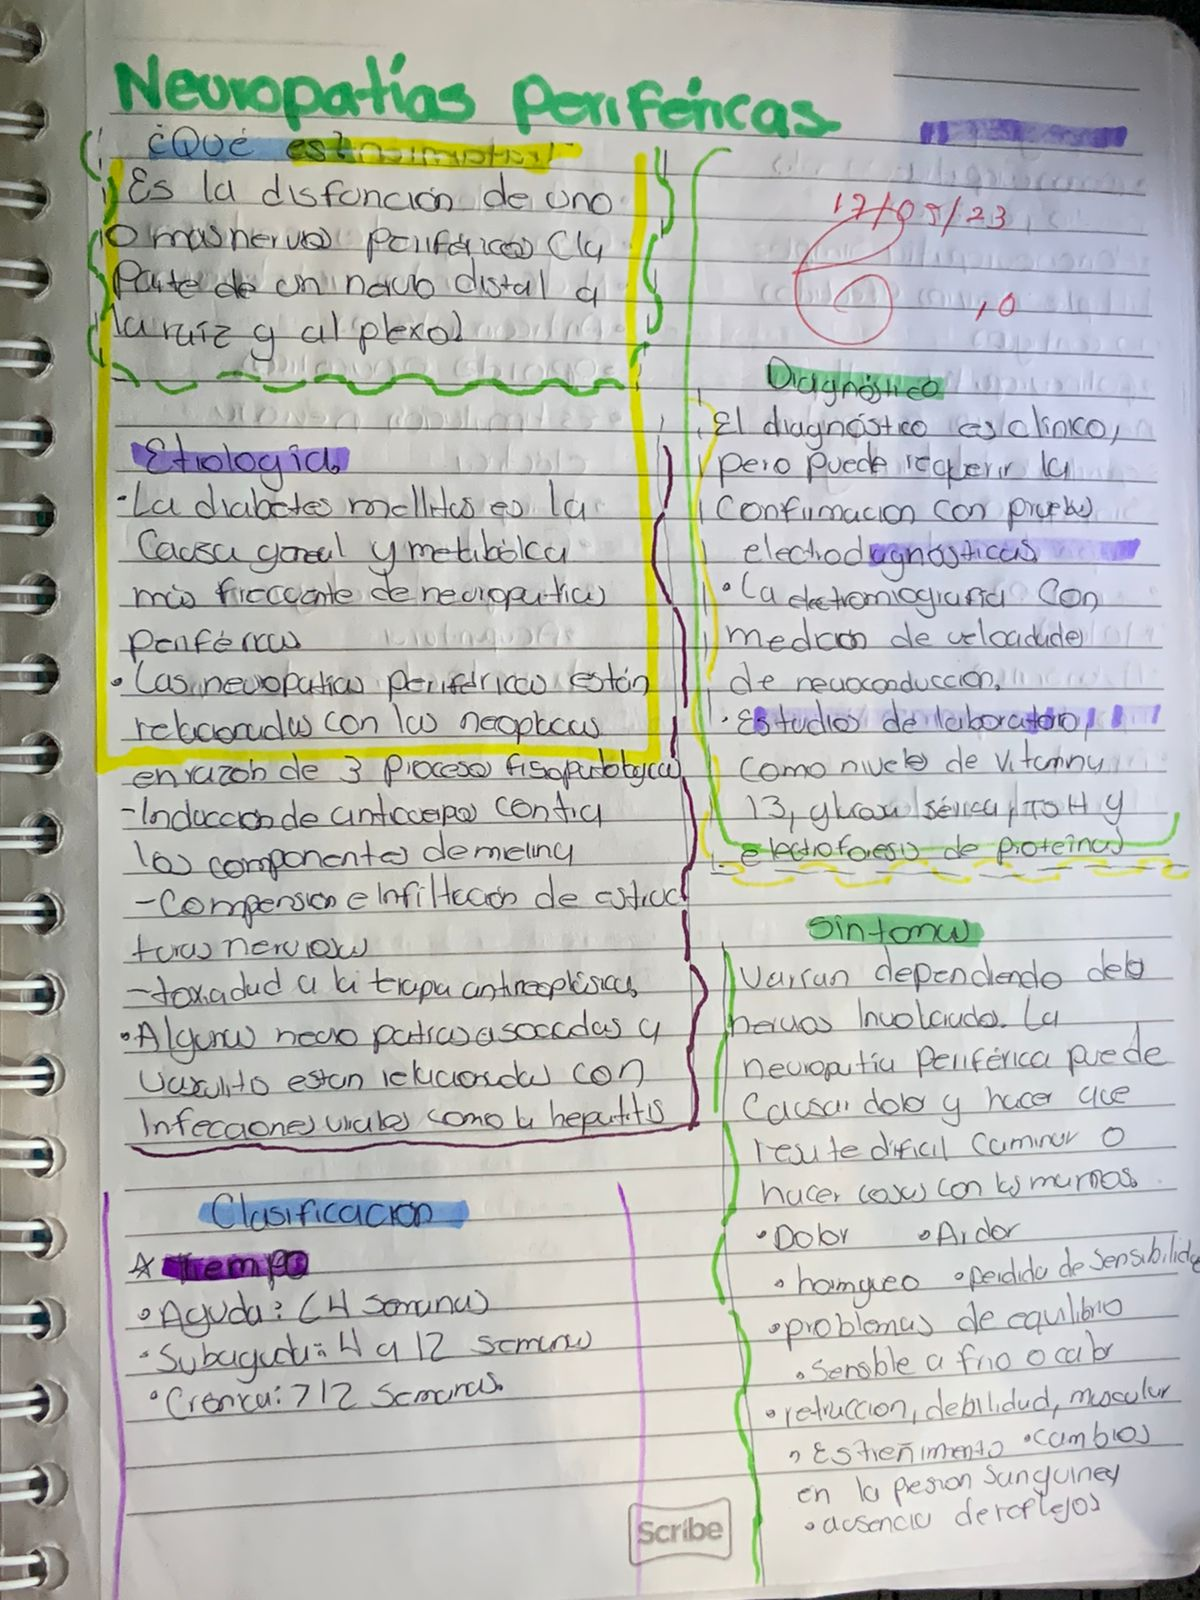 Neuropatías Periféricas
¿Qué es?
Es la disfunción de uno
o mas nervios periféricos (la
Parte de un nervio distal a
la raiz y al plexo)
Etiología
•La diabetes mellitus es la
Causa general y metabólica
más frecuente de neuropatias
periféricas
•Las neuropatias periféricas están
relacionadas con las neoplicas
en razon de 3 proceso fisopatologicas
-Induccion de anticuerpos contra
los componentes de melina
-Compension e Infiltracion de estruc
turas nerviosas
-toxiadad a la terapia antineoplesicas
•Algunas neuro paticas asociadas a
Vasculitis estan relacionadas con
Infecciones virales como la hepatitis
Clasificación
Tiempo
•Aguda: (4 semanas)
•Subaguda: 4 a 12 semanas
•Cronica: 712 semanas.
17/05/23
,0
Diagnóstico
El diagnóstico es clínico,
pero puede requerir la
Confirmacion con pruebas
electrodiagnosticas
•La electromiografia Con
medicion de velocidades
de neuroconduccion.
•Estudios de laboratorio,
Como niveles de vitamina
13, glucosa sérica, TSH y
electroforesis de proteínas
Sintomas
Varian dependiendo delo
nervios Involcrado. La
neuropatía Periférica puede
Causar dolor y hacer que
resulte dificil Caminar o
hacer cosas con las manos.
•Dolor •Ardor
•homgueo •perdida de sensibilidad
•problemas de equilibrio
•Sensible a frio o calor
•retraccion, debilidad, muscular
•Estreñimento •cambios
en la presion sanguinea
•ausencia de reflejos
Scribe